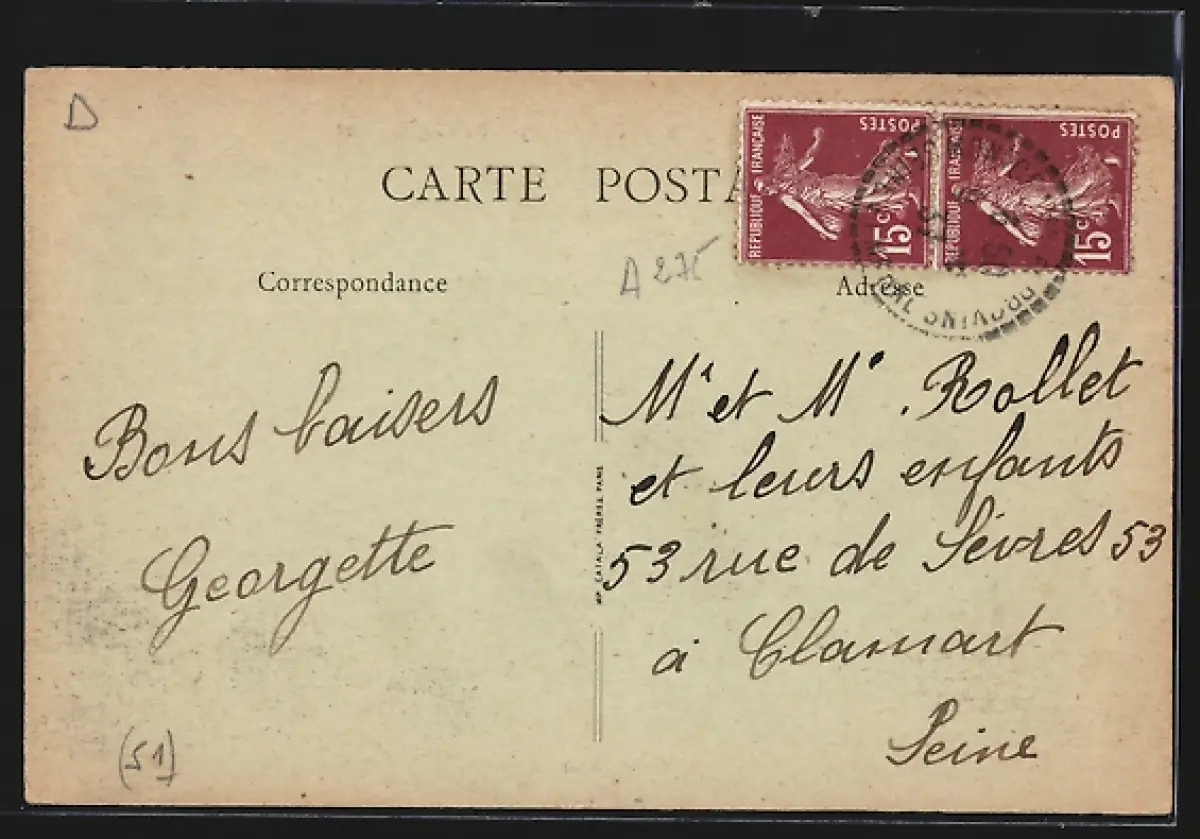 D
CARTE POSTA
RÉPUBLIQUE FRANÇAISE
POSTES
15c
RÉPUBLIQUE FRANÇAISE
POSTES
15c
PROVINS
A 275
Correspondance
Adresse
Bons baisers
Georgette
Mr et Me Rollet
et leurs enfants
53 rue de Sèvres 53
à Clamart
Seine
CATALA FRÈRES, PARIS
(51)